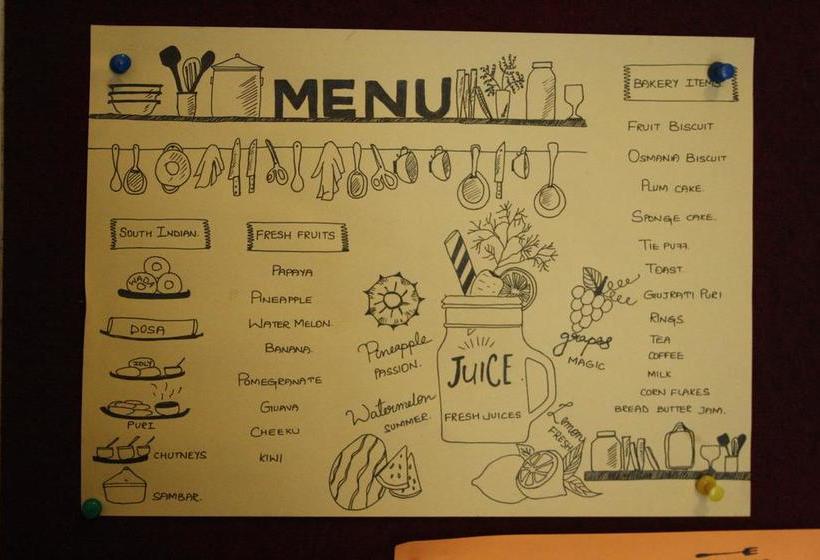 MENU
SOUTH INDIAN.
WADA
DOSA
IDLY
PURI
CHUTNEYS
SAMBAR.
FRESH FRUITS
PAPAYA
PINEAPPLE
WATER MELON.
BANANA.
POMEGRANATE
GUAVA
CHEEKU
KIWI
Pineapple
PASSION.
Watermelon
SUMMER.
JUICE.
FRESH JUICES
grapes
MAGIC
Lemon
FRESH
BAKERY ITEMS
FRUIT BISCUIT
OSMANIA BISCUIT
PLUM CAKE.
SPONGE CAKE.
TIE PUFF.
TOAST.
GUJRATI PURI
RINGS.
TEA
COFFEE
MILK
CORN FLAKES
BREAD BUTTER JAM.